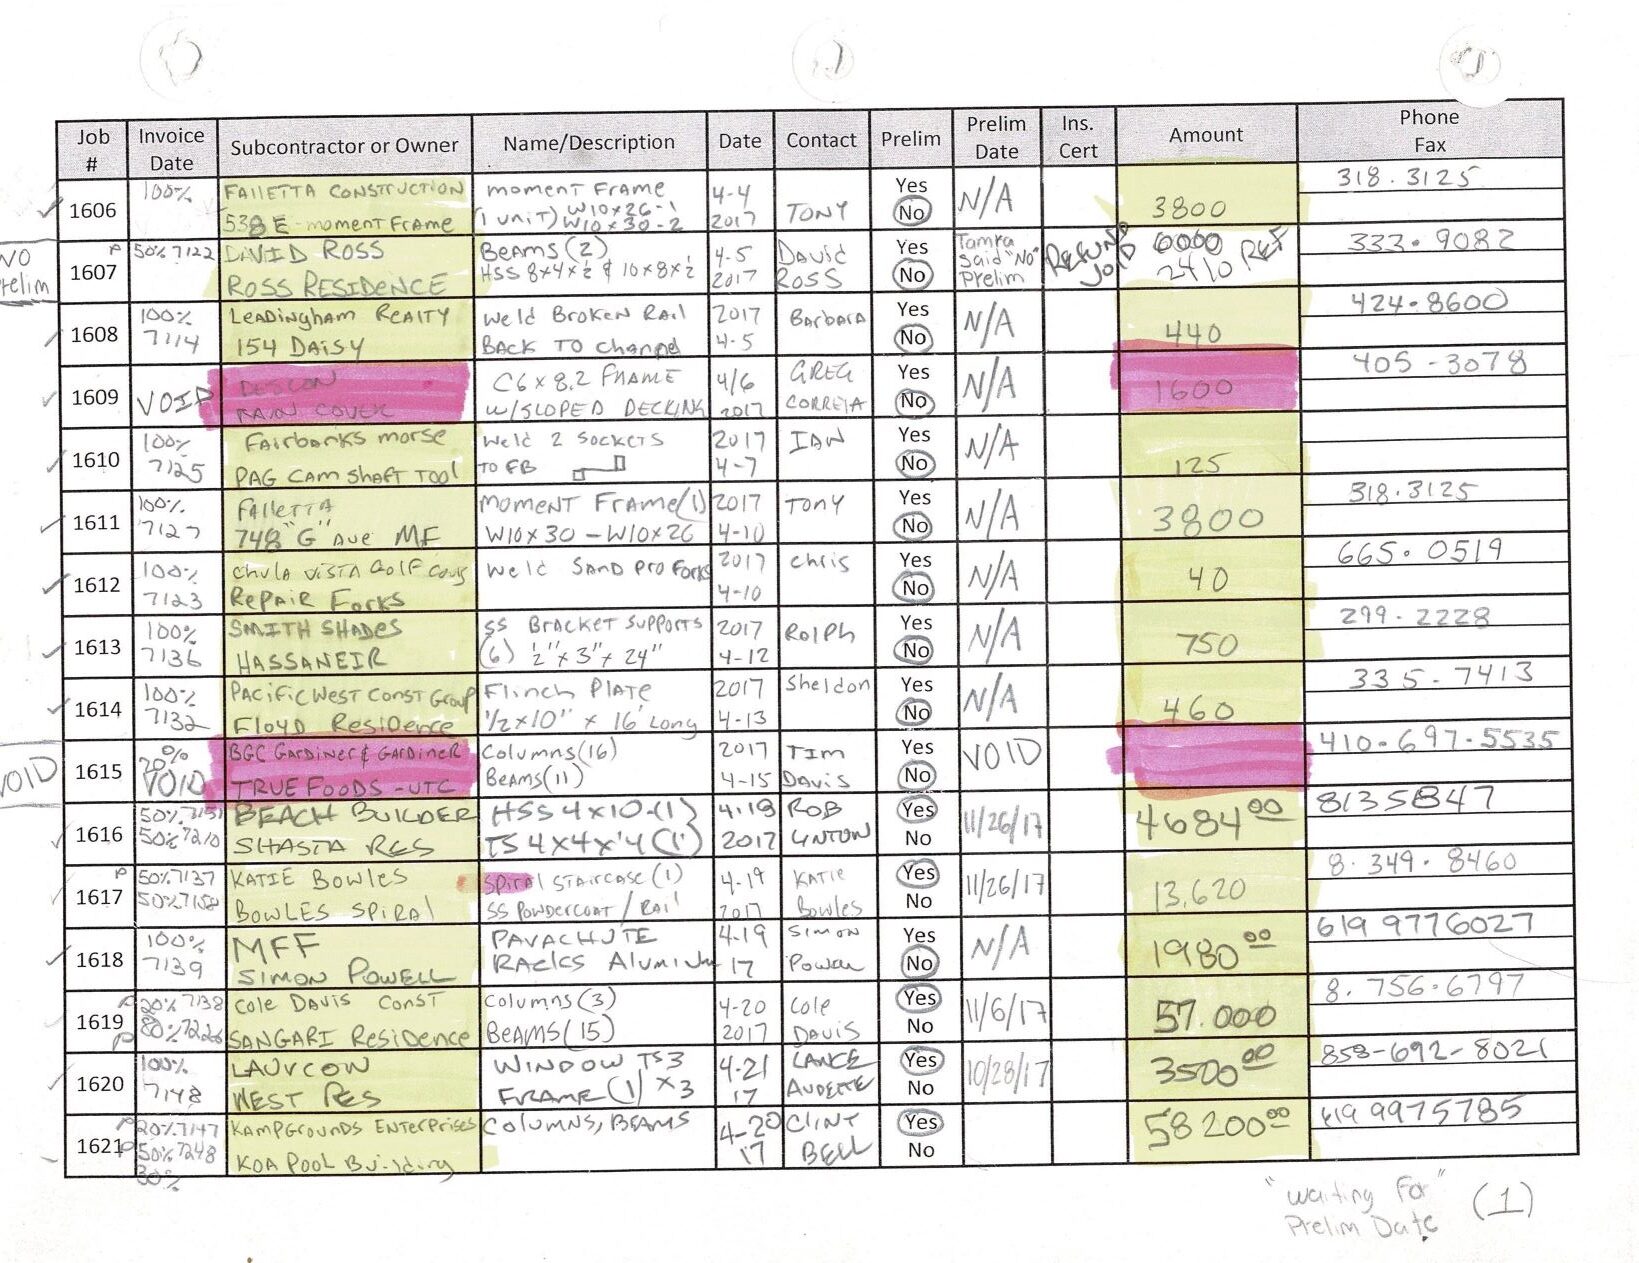 Job # Invoice Date Subcontractor or Owner Name/Description Date Contact Prelim Prelim Date Ins. Cert Amount Phone Fax
1606 100% FAllETTA CONSTRUCTION moment FRAME 4-4 Yes N/A 318.3125
538 E-moment FRAME (1 unit) W10x26-1 W10x30-2 2017 TONY No 3800
NO Prelim
1607 P 50% 7122 DAVID ROSS Beams (2) 4-5 David Yes Tamra said "No" Prelim Refund JOID 6000 333.9082
ROSS RESIDENCE HSS 8x4x½ & 10x8x½ 2017 ROSS No 2410 REF
1608 100% LeADingham ReAlTY Weld Broken RAil 2017 BarbaRA Yes N/A 424.8600
7114 154 DAiSY BACK TO Channel 4-5 No 440
1609 VOID DESCON C6x8.2 FRAME 4/6 GREG Yes N/A 1600 405-3078
RAIN COVER W/SLOPED DECKING 2017 CORREIA No
1610 100% FAirbanks morse Weld 2 Sockets 2017 IAN Yes N/A
7125 PAG CAm ShaFT Tool TO FB 4-7 No 125
1611 100% FAlleTTA MOMENT FRAME (1) 2017 TONY Yes N/A 318.3125
7127 748 "G" Ave MF W10x30-W10x26 4-10 No 3800
1612 100% Chula VISTA Golf Weld SAND PRO FORKS 2017 Chris Yes N/A 665.0519
7123 RePAIR Forks 4-10 No 40
1613 100% SMITH SHADES SS BRACKET SUPPORTS 2017 RalPh Yes N/A 299-2228
7136 HASSANEIR (6) ½"x3"x24" 4-12 No 750
1614 100% PACificWest Const Group Flinch PLATE 2017 Sheldon Yes N/A 335.7413
7132 Floyd Residence 1/2x10" x 16' Long 4-13 No 460
VOID
1615 % VOID BGC GARDINER & GARDINER Columns (16) 2017 TIM Yes VOID 410.697.5535
TRUE FOODS-UTC BeAMS (11) 4-15 DAVIS No
1616 50% 7151 BEACH BUILDER HSS 4x10-(1) 4.19 ROB Yes 11/26/17 4684.00 8135847
50% 7210 SHASTA RES TS 4x4x¼ (1) 2017 LINTON No
1617 P 50% 7137 KATIE Bowles SPIRAL STAIRCASE (1) 4-19 KATIE Yes 11/26/17 8.349.8460
50% 7158 BOWLES SPIRAl SS POWDERCOAT/RAil 2017 Bowles No 13,620
1618 100% MFF PARACHUTE 4-19 SIMON Yes N/A 619 9776027
7139 SIMON POWELL RACKS ALUMINUM 17 Powell No 1980.00
1619 P 20% 7138 Cole DAVIS CONST Columns (3) 4-20 Cole Yes 11/6/17 8.756.6797
P 80% 7226 SANGARI Residence BeAMS (15) 2017 DAVIS No 57.000
1620 100% LAURCOW WINDOW TS3 4-21 LANCE Yes 10/28/17 858-692-8021
7148 WEST RES FRAME (1) x3 17 AUDETTE No 3500.00
1621 P 20% 7147 KAMPGROUNDS ENTERPRISES Columns, BEAMS 4-20 CLINT Yes 58200.00 619 9975785
P 50% 7248 KOA Pool Building 17 BELL No
30%
"Waiting For" (1)
Prelim Date